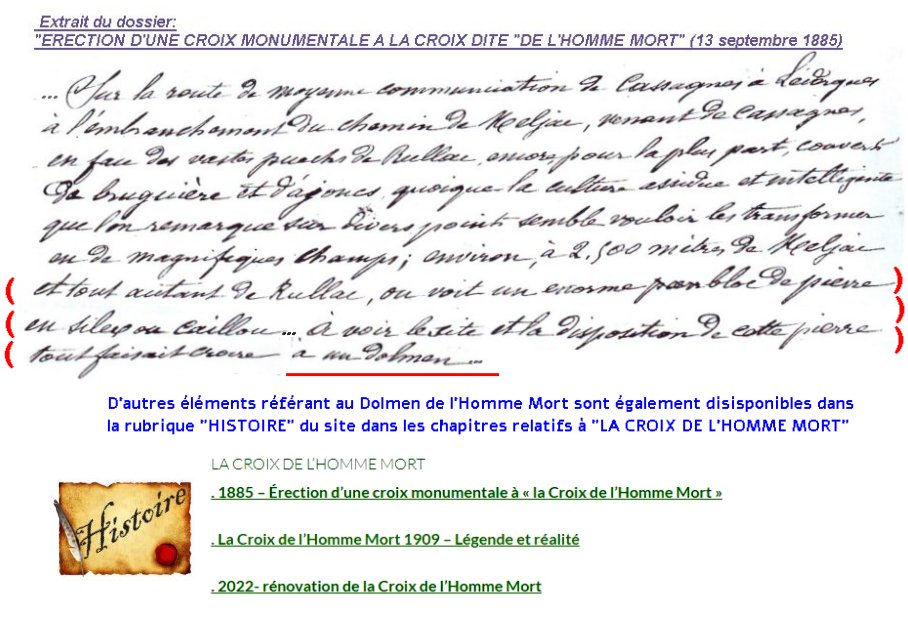 Extrait du dossier:
"ERECTION D'UNE CROIX MONUMENTALE A LA CROIX DITE "DE L'HOMME MORT" (13 septembre 1885)
... Sur la route de moyenne communication de Cassagnes à Lédergues
à l'embranchement du chemin de Meljac, venant de Cassagnes,
en face des vastes puechs de Rullac, encore pour la plus part, couverts
de bruguière et d'ajoncs, quoique la culture assidue et intelligente
que l'on remarque sur divers points semble vouloir les transformer
en de magnifiques champs; environ, à 2.500 mètres de Meljac
( et tout autant de Rullac, on voit un enorme bloc de pierre )
( en silex ou caillou ... à voir le site et la disposition de cette pierre )
( tout faisait croire à un dolmen ... )
D'autres éléments référant au Dolmen de l'Homme Mort sont également disisponibles dans
la rubrique "HISTOIRE" du site dans les chapitres relatifs à "LA CROIX DE L'HOMME MORT"
LA CROIX DE L'HOMME MORT
. 1885 – Érection d'une croix monumentale à « la Croix de l'Homme Mort »
Histoire
. La Croix de l'Homme Mort 1909 – Légende et réalité
. 2022- rénovation de la Croix de l'Homme Mort